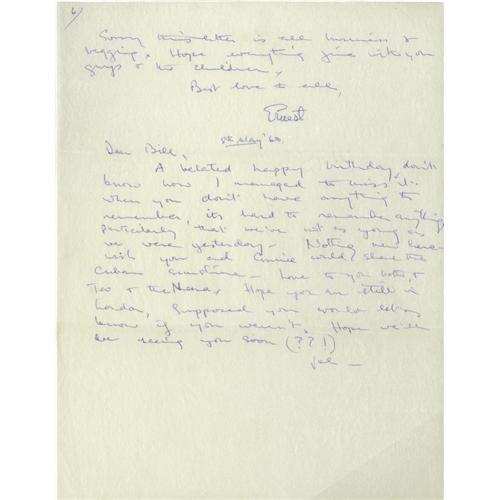 6/
Sorry this letter is all business &
begging. Hope everything fine with you
guys & the children.
Best love to all,
Ernest
8th May '60
Dear Bill,
A belated happy birthday, don't
know how I managed to miss it:
when you don't have anything to
remember, its hard to remember anything
particularly that we're not as young as
we were yesterday - Nothing new here
wish you and Annie would share the
Cuban sunshine - Love to you both, &
Tav & the Nena, Hope you are still in
London, supposed you would let us
know if you weren't. Hope we'll
be seeing you soon (??!)